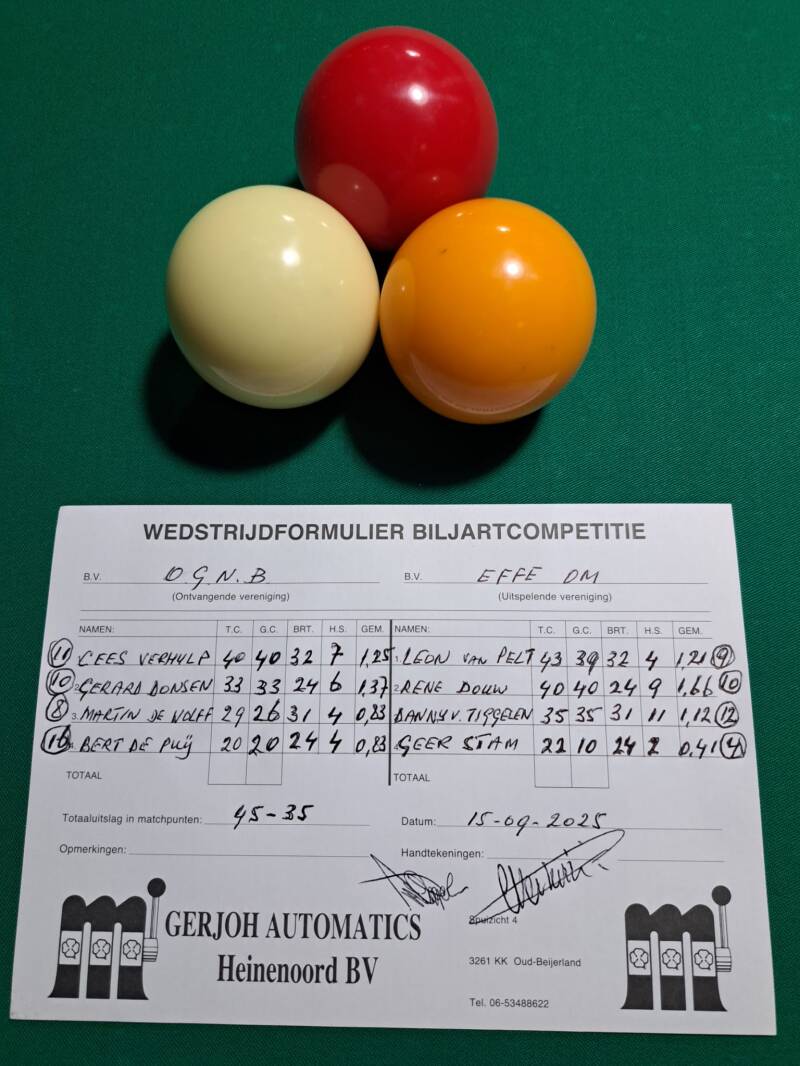 WEDSTRIJDFORMULIER BILJARTCOMPETITIE
B.V. O.G.N.B B.V. EFFE DM
(Ontvangende vereniging) (Uitspelende vereniging)
NAMEN: T.C. G.C. BRT. H.S. GEM. NAMEN: T.C. G.C. BRT. H.S. GEM.
11 CEES VERHULP 40 40 32 7 1,25 1. LEON VAN PELT 43 39 32 4 1,21 9
10 2. GERARD DONSEN 33 33 24 6 1,37 2. RENE DOUW 40 40 24 9 1,66 10
8 3. MARTIN DE WOLFF 29 26 31 4 0,83 DANNY V. TIGGELEN 35 35 31 11 1,12 12
16 BERT DE PUIJ 20 20 24 4 0,83 GEER STAM 22 10 24 2 0,41 4
TOTAAL TOTAAL
Totaaluitslag in matchpunten: 45-35 Datum: 15-09-2025
Opmerkingen: Handtekeningen:
GERJOH AUTOMATICS
Heinenoord BV
Spuizicht 4
3261 KK Oud-Beijerland
Tel. 06-53488622